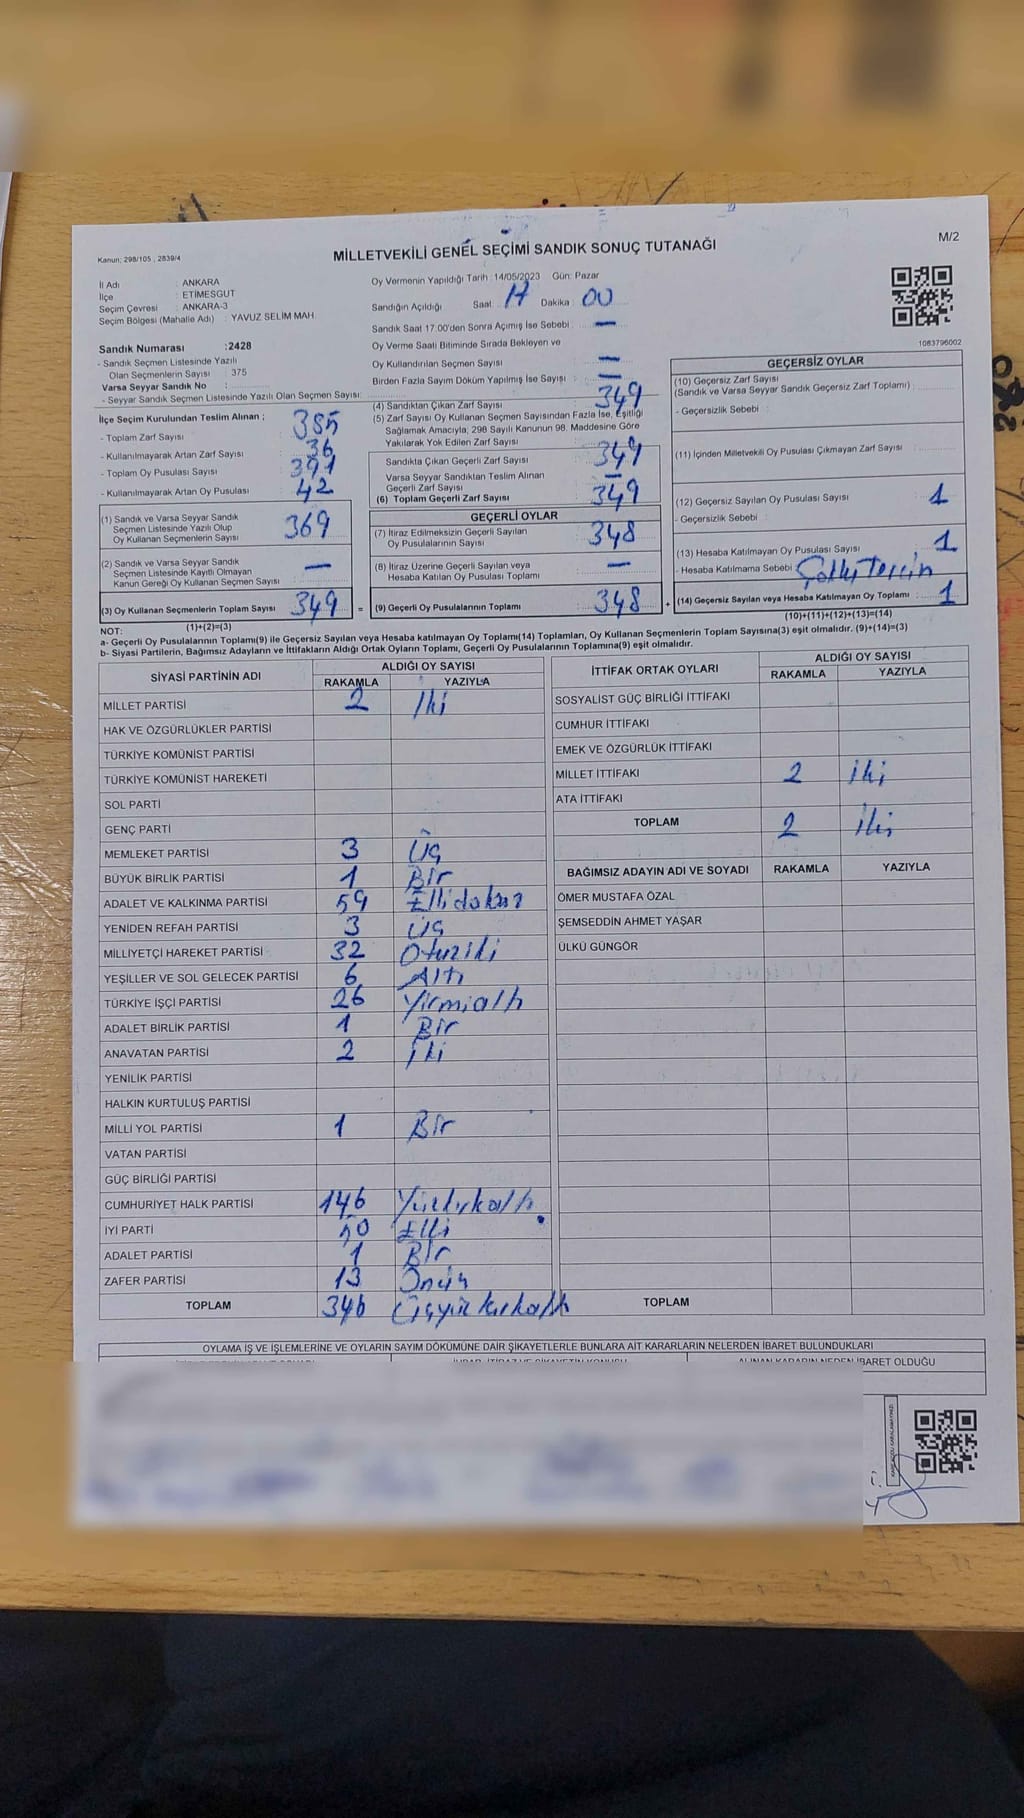 M/2
Kanun; 298/105 , 2839/4
MİLLETVEKİLİ GENEL SEÇİMİ SANDIK SONUÇ TUTANAĞI
İl Adı : ANKARA
İlçe : ETİMESGUT
Seçim Çevresi : ANKARA-3
Seçim Bölgesi (Mahalle Adı) : YAVUZ SELİM MAH.
Oy Vermenin Yapıldığı Tarih :14/05/2023 Gün: Pazar
Sandığın Açıldığı Saat: 17 Dakika : 00
Sandık Saat 17.00'den Sonra Açımış İse Sebebi : —
Oy Verme Saati Bitiminde Sırada Bekleyen ve
Oy Kullandırılan Seçmen Sayısı : —
Birden Fazla Sayım Döküm Yapılmış İse Sayısı : —
1083796002
Sandık Numarası :2428
- Sandık Seçmen Listesinde Yazılı
Olan Seçmenlerin Sayısı : 375
Varsa Seyyar Sandık No :
- Seyyar Sandık Seçmen Listesinde Yazılı Olan Seçmen Sayısı:
İlçe Seçim Kurulundan Teslim Alınan ;
- Toplam Zarf Sayısı : 385
- Kullanılmayarak Artan Zarf Sayısı : 36
- Toplam Oy Pusulası Sayısı : 391
- Kullanılmayarak Artan Oy Pusulası : 42
(1) Sandık ve Varsa Seyyar Sandık
Seçmen Listesinde Yazılı Olup
Oy Kullanan Seçmenlerin Sayısı : 369
(2) Sandık ve Varsa Seyyar Sandık
Seçmen Listesinde Kayıtlı Olmayan
Kanun Gereği Oy Kullanan Seçmen Sayısı : —
(3) Oy Kullanan Seçmenlerin Toplam Sayısı : 349 =
(1)+(2)=(3)
(4) Sandıktan Çıkan Zarf Sayısı : 349
(5) Zarf Sayısı Oy Kullanan Seçmen Sayısından Fazla İse, Eşitliği
Sağlamak Amacıyla; 298 Sayılı Kanunun 98. Maddesine Göre
Yakılarak Yok Edilen Zarf Sayısı :
Sandıkta Çıkan Geçerli Zarf Sayısı : 349
Varsa Seyyar Sandıktan Teslim Alınan
Geçerli Zarf Sayısı : —
(6) Toplam Geçerli Zarf Sayısı : 349
GEÇERLİ OYLAR
(7) İtiraz Edilmeksizin Geçerli Sayılan
Oy Pusulalarının Sayısı : 348
(8) İtiraz Üzerine Geçerli Sayılan veya
Hesaba Katılan Oy Pusulası Toplamı : —
(9) Geçerli Oy Pusulalarının Toplamı : 348 +
GEÇERSİZ OYLAR
(10) Geçersiz Zarf Sayısı
(Sandık ve Varsa Seyyar Sandık Geçersiz Zarf Toplamı) :
- Geçersizlik Sebebi :
(11) İçinden Milletvekili Oy Pusulası Çıkmayan Zarf Sayısı :
(12) Geçersiz Sayılan Oy Pusulası Sayısı : 1
- Geçersizlik Sebebi :
(13) Hesaba Katılmayan Oy Pusulası Sayısı : 1
- Hesaba Katılmama Sebebi :
(14) Geçersiz Sayılan veya Hesaba Katılmayan Oy Toplamı : 1
(10)+(11)+(12)+(13)=(14)
NOT:
a- Geçerli Oy Pusulalarının Toplamı(9) ile Geçersiz Sayılan veya Hesaba katılmayan Oy Toplamı(14) Toplamları, Oy Kullanan Seçmenlerin Toplam Sayısına(3) eşit olmalıdır. (9)+(14)=(3)
b- Siyasi Partilerin, Bağımsız Adayların ve İttifakların Aldığı Ortak Oyların Toplamı, Geçerli Oy Pusulalarının Toplamına(9) eşit olmalıdır.
SİYASİ PARTİNİN ADI ALDIĞI OY SAYISI
RAKAMLA YAZIYLA
MİLLET PARTİSİ 2 İki
HAK VE ÖZGÜRLÜKLER PARTİSİ
TÜRKİYE KOMÜNİST PARTİSİ
TÜRKİYE KOMÜNİST HAREKETİ
SOL PARTİ
GENÇ PARTİ
MEMLEKET PARTİSİ 3 Üç
BÜYÜK BİRLİK PARTİSİ 1 Bir
ADALET VE KALKINMA PARTİSİ 59 Ellidokuz
YENİDEN REFAH PARTİSİ 3 Üç
MİLLİYETÇİ HAREKET PARTİSİ 32 Otuziki
YEŞİLLER VE SOL GELECEK PARTİSİ 6 Altı
TÜRKİYE İŞÇİ PARTİSİ 26 Yirmialtı
ADALET BİRLİK PARTİSİ 1 Bir
ANAVATAN PARTİSİ 2 İki
YENİLİK PARTİSİ
HALKIN KURTULUŞ PARTİSİ
MİLLİ YOL PARTİSİ 1 Bir
VATAN PARTİSİ
GÜÇ BİRLİĞİ PARTİSİ
CUMHURİYET HALK PARTİSİ 146 Yüzkırkaltı
İYİ PARTİ 50 Elli
ADALET PARTİSİ 1 Bir
ZAFER PARTİSİ 13 Onüç
TOPLAM 346 Üçyüzkırkaltı
İTTİFAK ORTAK OYLARI ALDIĞI OY SAYISI
RAKAMLA YAZIYLA
SOSYALİST GÜÇ BİRLİĞİ İTTİFAKI
CUMHUR İTTİFAKI
EMEK VE ÖZGÜRLÜK İTTİFAKI
MİLLET İTTİFAKI 2 iki
ATA İTTİFAKI
TOPLAM 2 İki
BAĞIMSIZ ADAYIN ADI VE SOYADI RAKAMLA YAZIYLA
ÖMER MUSTAFA ÖZAL
ŞEMSEDDİN AHMET YAŞAR
ÜLKÜ GÜNGÖR
TOPLAM
OYLAMA İŞ VE İŞLEMLERİNE VE OYLARIN SAYIM DÖKÜMÜNE DAİR ŞİKAYETLERLE BUNLARA AİT KARARLARIN NELERDEN İBARET BULUNDUKLARI
ALINAN KARARIN NEDEN İBARET OLDUĞU